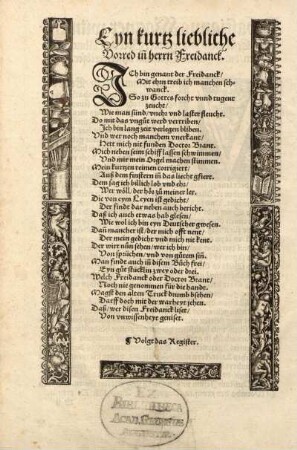 Eyn kurtz liebliche
Vorred iñ herrn Freidanck.
ICh bin genant der Freidanck/
Mit ehrn treib ich manchen schwanck.
So zu Gottes forcht vnnd tugent
zeucht/
Wie man sünd/ vneht vnd laster fleucht.
Do mit das vngůt werd vertriben/
Ich bin lang zeit verlegen bliben.
Vnd wer noch manchem vnerkant/
Hett mich nit funden Doctor Brant.
Mich neben jm schiff lassen schwimmen/
Vnd mit mein Orgel machen stimmen.
Mein kurtzen reimen corrigiert/
Auß dem finstern iñ das liecht gfiert.
Dem sag ich billich lob vnd ehr/
Wer wöll, der hör zů meiner ler.
Die von eym Leyen ist gedicht/
Der findt dar neben auch bericht.
Daß ich auch etwas hab glesen/
Wie wol ich bin eyn Deutscher gwesen.
Dañ mancher ist, der mich offt nent/
Der mein gedicht vnd mich nit kent.
Der wirt nün sehen/ wer ich bin/
Von sprüchen/ vnd von gůtem siñ.
Man findt auch iñ disem Bůch frei/
Eyn gůt stücklin zwey oder drei.
Welch Freidanck oder Doctor Brant/
Noch nie genommen für die handt.
Magst den alten Truck drumb bsehen/
Darff doch mit der warheyt jehen.
Daß/ wer disen Freidanck liset/
Von vnwissenheyt geniset.
¶ Volgt das Register.
EX
BIBLIOTHECA